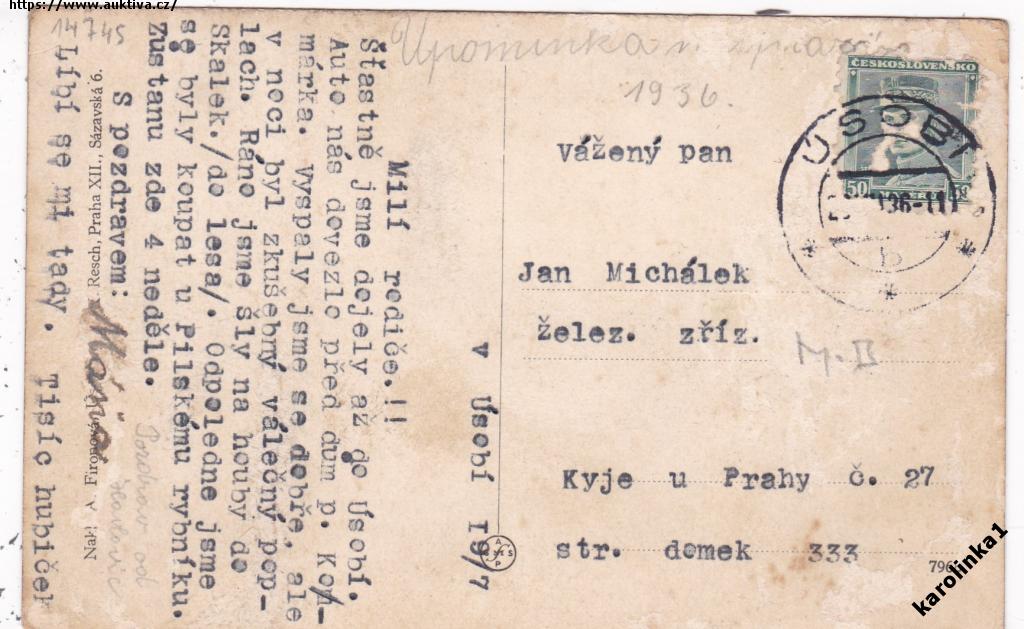 https://www.auktiva.cz/
14745
Upomínka
1936.
ČESKOSLOVENSKO
50
ÚSOBÍ
36-11
b
v Úsobí 19/7
Milí rodiče.!!
Šťastně jsme dojely až do Úsobí.
Auto nás dovezlo před dum p. Kon-
márka. Vyspaly jsme se dobře, ale
v noci byl zkušebný válečný pop-
lach. Ráno jsme šly na houby do
Skalek./do lesa/. Odpoledne jsme
se byly koupat u Pilskému rybníku.
Zustanu zde 4 neděle.
S pozdravem: Máňa
Líbí se mi tady. Tisíc hubiček
Pozdrav od
Nakl A. Fironová
Resch, Praha XII., Sázavská 6.
Vážený pan
Jan Michálek
želez. zříz.
M.B
Kyje u Prahy č. 27
str. domek 333
796
karolinka1